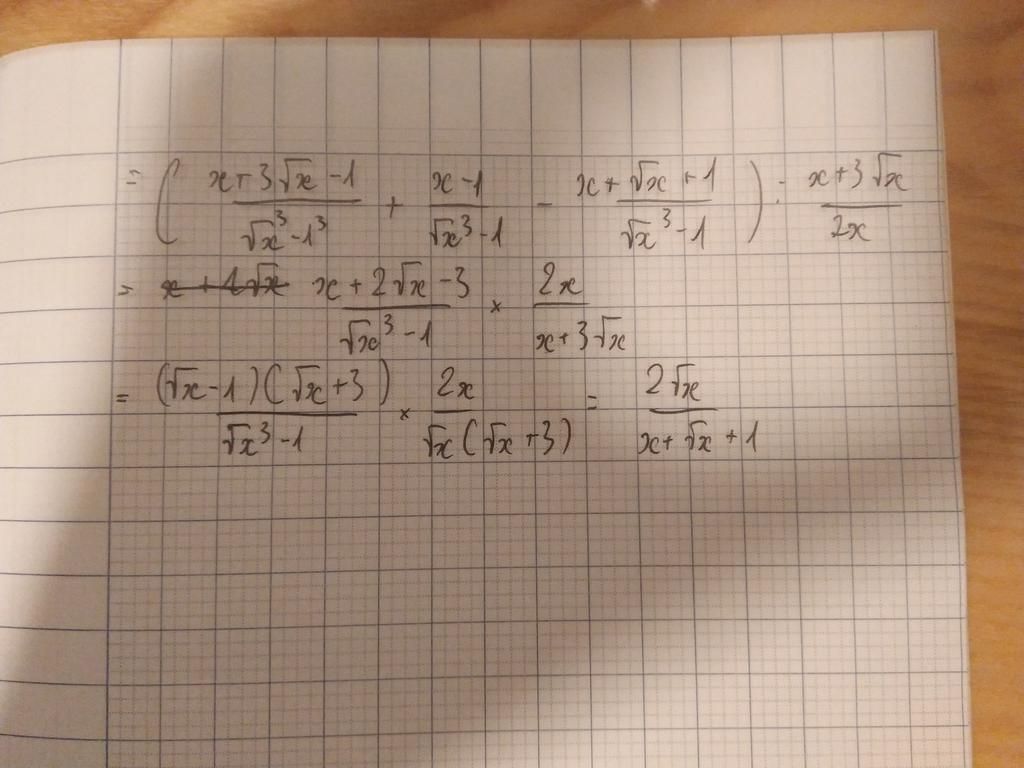 = ( (x+3√x -1)/(√x³-1³) + (x-1)/(√x³-1) - (x+√x+1)/(√x³-1) ) : (x+3√x)/(2x)
= x+1√x (x+2√x-3)/(√x³-1) × (2x)/(x+3√x)
= ((√x-1)(√x+3))/(√x³-1) × (2x)/(√x(√x+3)) = (2√x)/(x+√x+1)